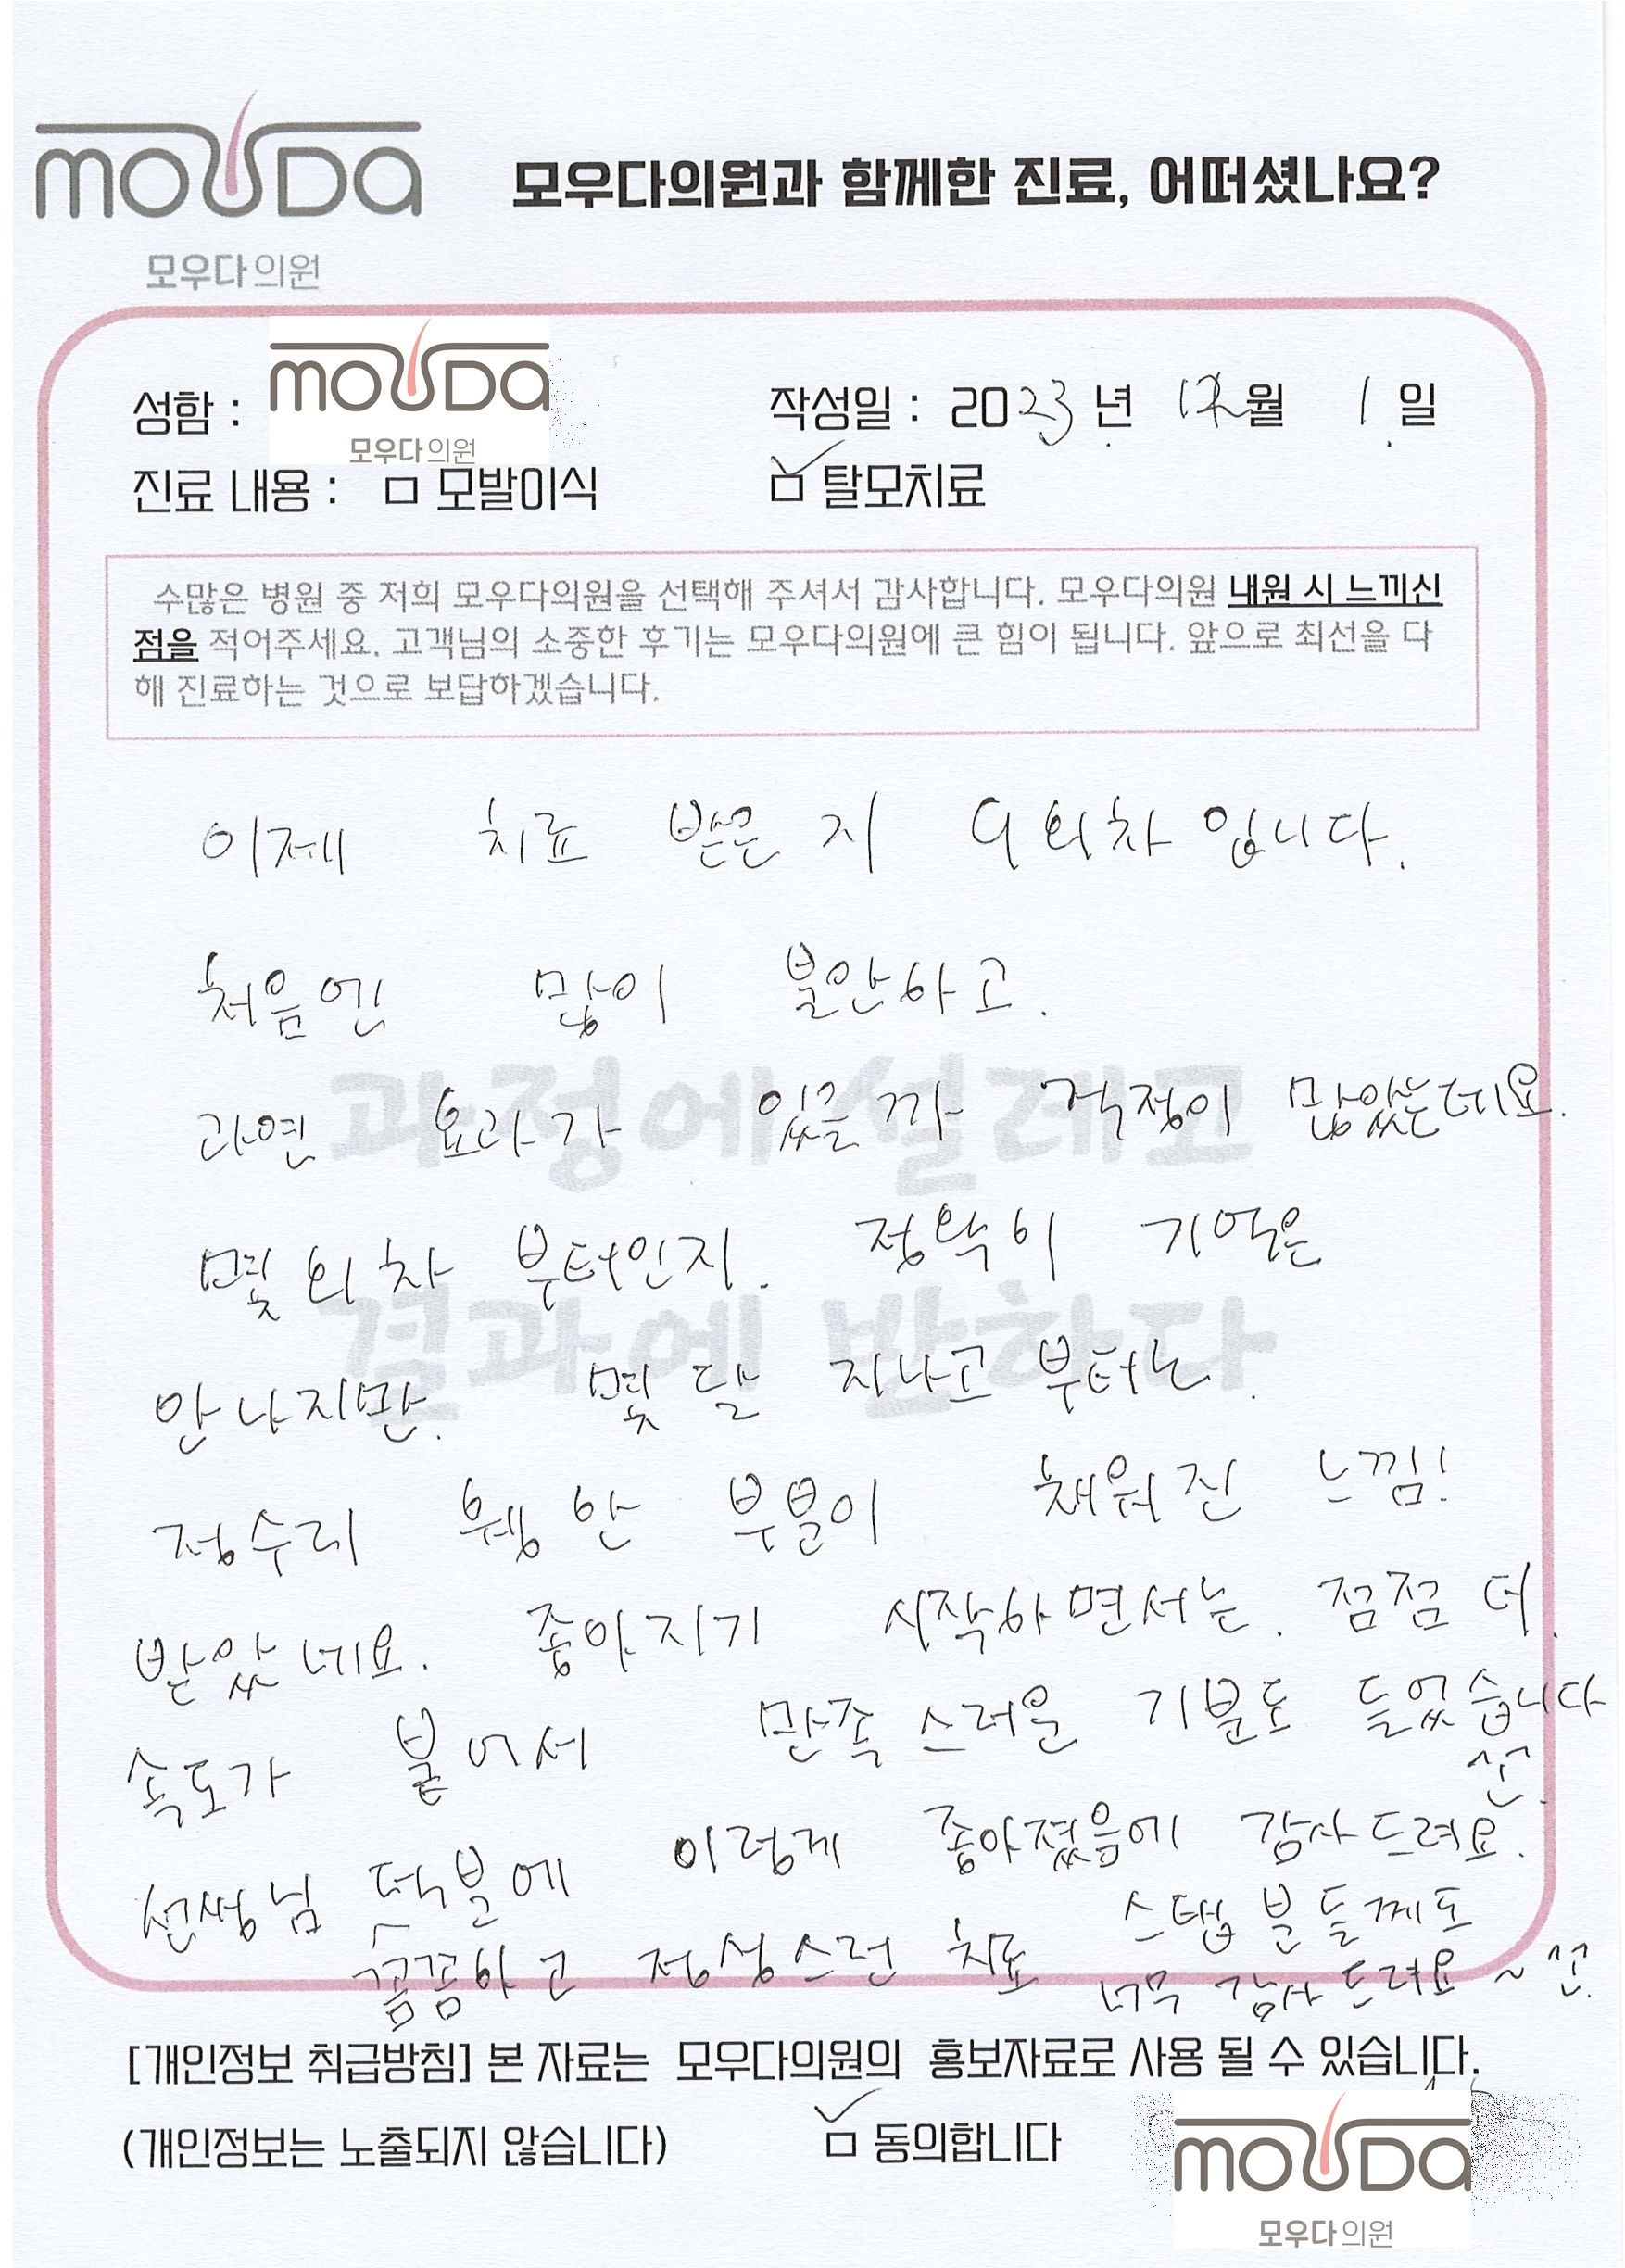 mouda
모우다의원과 함께한 진료, 어떠셨나요?
모우다의원
성함 : mouda
모우다의원
작성일 : 2023 년 12월 1 일
진료 내용 : □ 모발이식 ☑ 탈모치료
수많은 병원 중 저희 모우다의원을 선택해 주셔서 감사합니다. 모우다의원 내원 시 느끼신
점을 적어주세요. 고객님의 소중한 후기는 모우다의원에 큰 힘이 됩니다. 앞으로 최선을 다
해 진료하는 것으로 보답하겠습니다.
이제 치료 받은 지 9회차 입니다.
처음엔 많이 불안하고.
과정에 설레고
과연 효과가 있을까 걱정이 많았는데요.
몇 회차 부터인지. 정확히 기억은
결과에 반하다
안나지만. 몇 달 지나고 부터는.
정수리 휑한 부분이 채워진 느낌!
받았네요. 좋아지기 시작하면서는. 점점 더.
속도가 붙어서 만족스러운 기분도 들었습니다
선생님 덕분에 이렇게 좋아졌음에 감사드려요.
꼼꼼하고 정성스런 치료 스탭 분들께도
너무 감사드려요~
[개인정보 취급방침] 본 자료는 모우다의원의 홍보자료로 사용 될 수 있습니다.
(개인정보는 노출되지 않습니다) ☑ 동의합니다
mouda
모우다의원